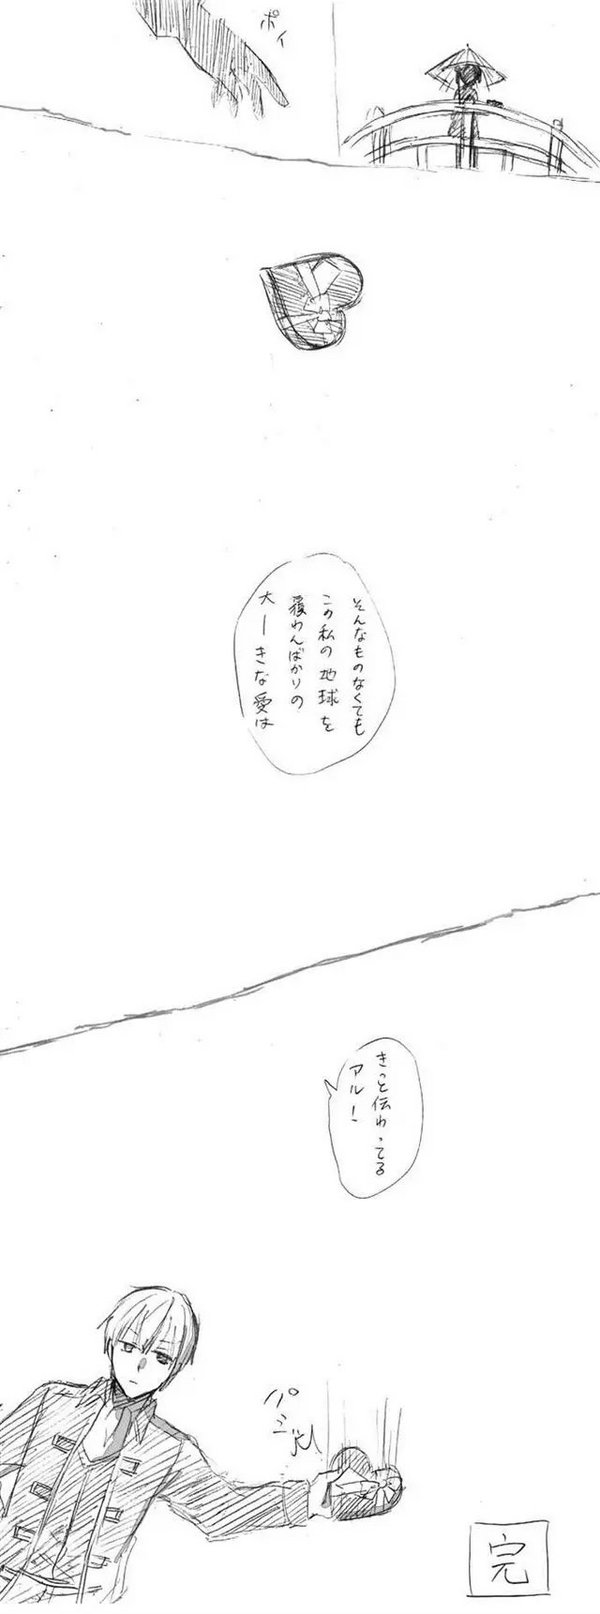 ポイ
そんなものなくても
この私の地球を
覆わんばかりの
大ーきな愛は
きっと伝わってる
アルー
パシッ
完